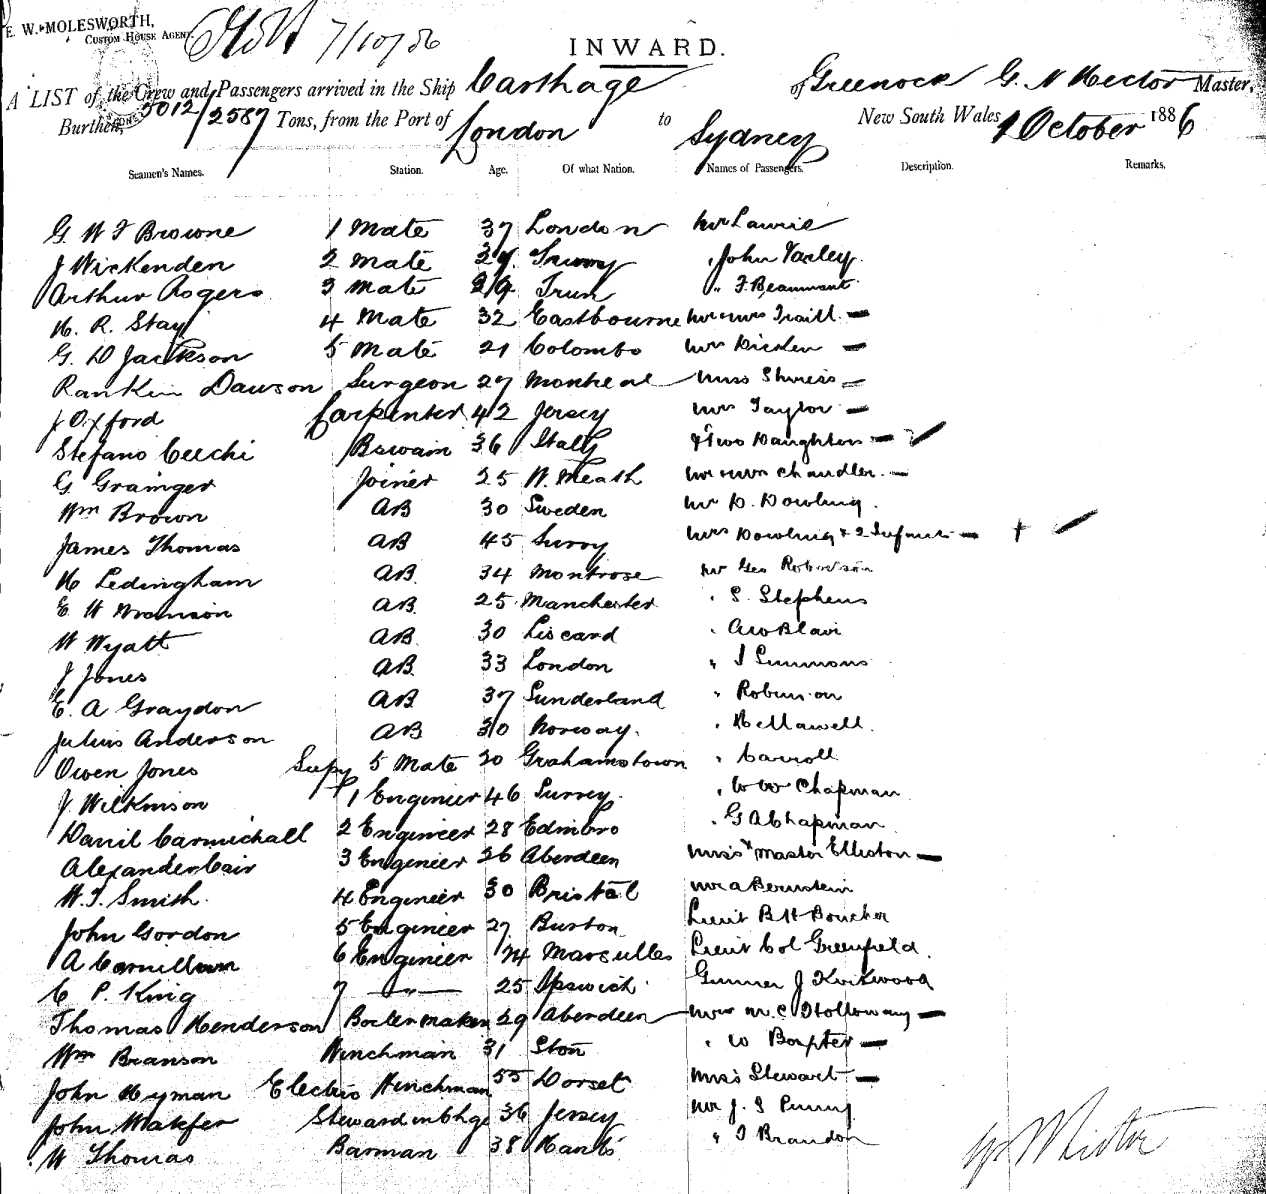 E. W. MOLESWORTH,
CUSTOM HOUSE AGENT.
7/10/86
INWARD.
A LIST of the Crew and Passengers arrived in the Ship Carthage of Greenock G. N Hector Master,
Burthen, 5012/2587 Tons, from the Port of London to Sydney New South Wales 1 October 1886
Seamen's Names. Station. Age. Of what Nation. Names of Passengers. Description. Remarks.
G W F Browne 1 Mate 37 London Mr Laurie
J Wickenden 2 Mate Surrey " John Varley
Arthur Rogers 3 Mate " F. Beaumont
H. R. Stay 4 Mate 32 Eastbourne Mr & Mrs Traill —
G D Jackson 5 Mate 21 Colombo Mrs —
Rankin Dawson Surgeon 27 Montreal Miss —
J Oxford Carpenter 42 Jersey Mrs Taylor —
Stefano Cecchi Bswain 36 Italy & Two Daughters —
G Grainger Joiner 25 W. Meath Mr & Mrs Chandler —
Wm Brown AB 30 Sweden Mr D. Dowling
James Thomas AB 45 Surry Mrs Dowling & 2 Infants —
H Ledingham AB 34 Montrose Mr Geo Robertson
E W AB 25 Manchester " S. Stephens
W Wyatt AB 30 Liscard "
J Jones AB 33 London " Simmons
E. A Graydon AB 37 Sunderland " Robinson
Julius Anderson AB 30 Norway "
Owen Jones Supy 5 Mate 20 Grahamstown " Carroll
J. Wilkinson 1 Engineer 46 Surrey " W W Chapman
David Carmichall 2 Engineer 28 Edinbro " G A Chapman
Alexander Cair 3 Engineer 26 Aberdeen Miss & Master Elliston —
W. F. Smith 4 Engineer 30 Bristol Mr A Bernstein
John Gordon 5 Engineer 27 Burton Lieut B H Boucher
A 6 Engineer 24 Marseilles Lieut Col Greenfield
C P. King 7 —"— 25 Ipswich Gunner J Kirkwood
Thomas Henderson Boilermaker 29 Aberdeen Mrs M. C Holloway —
Wm Branson Winchman 31 " W Baxter —
John Hyman Electric Winchman 55 Dorset Miss Stewart —
John Makfer Steward in Chge 36 Jersey Mr J. S
W Thomas Barman 38 Hants " T Brandon